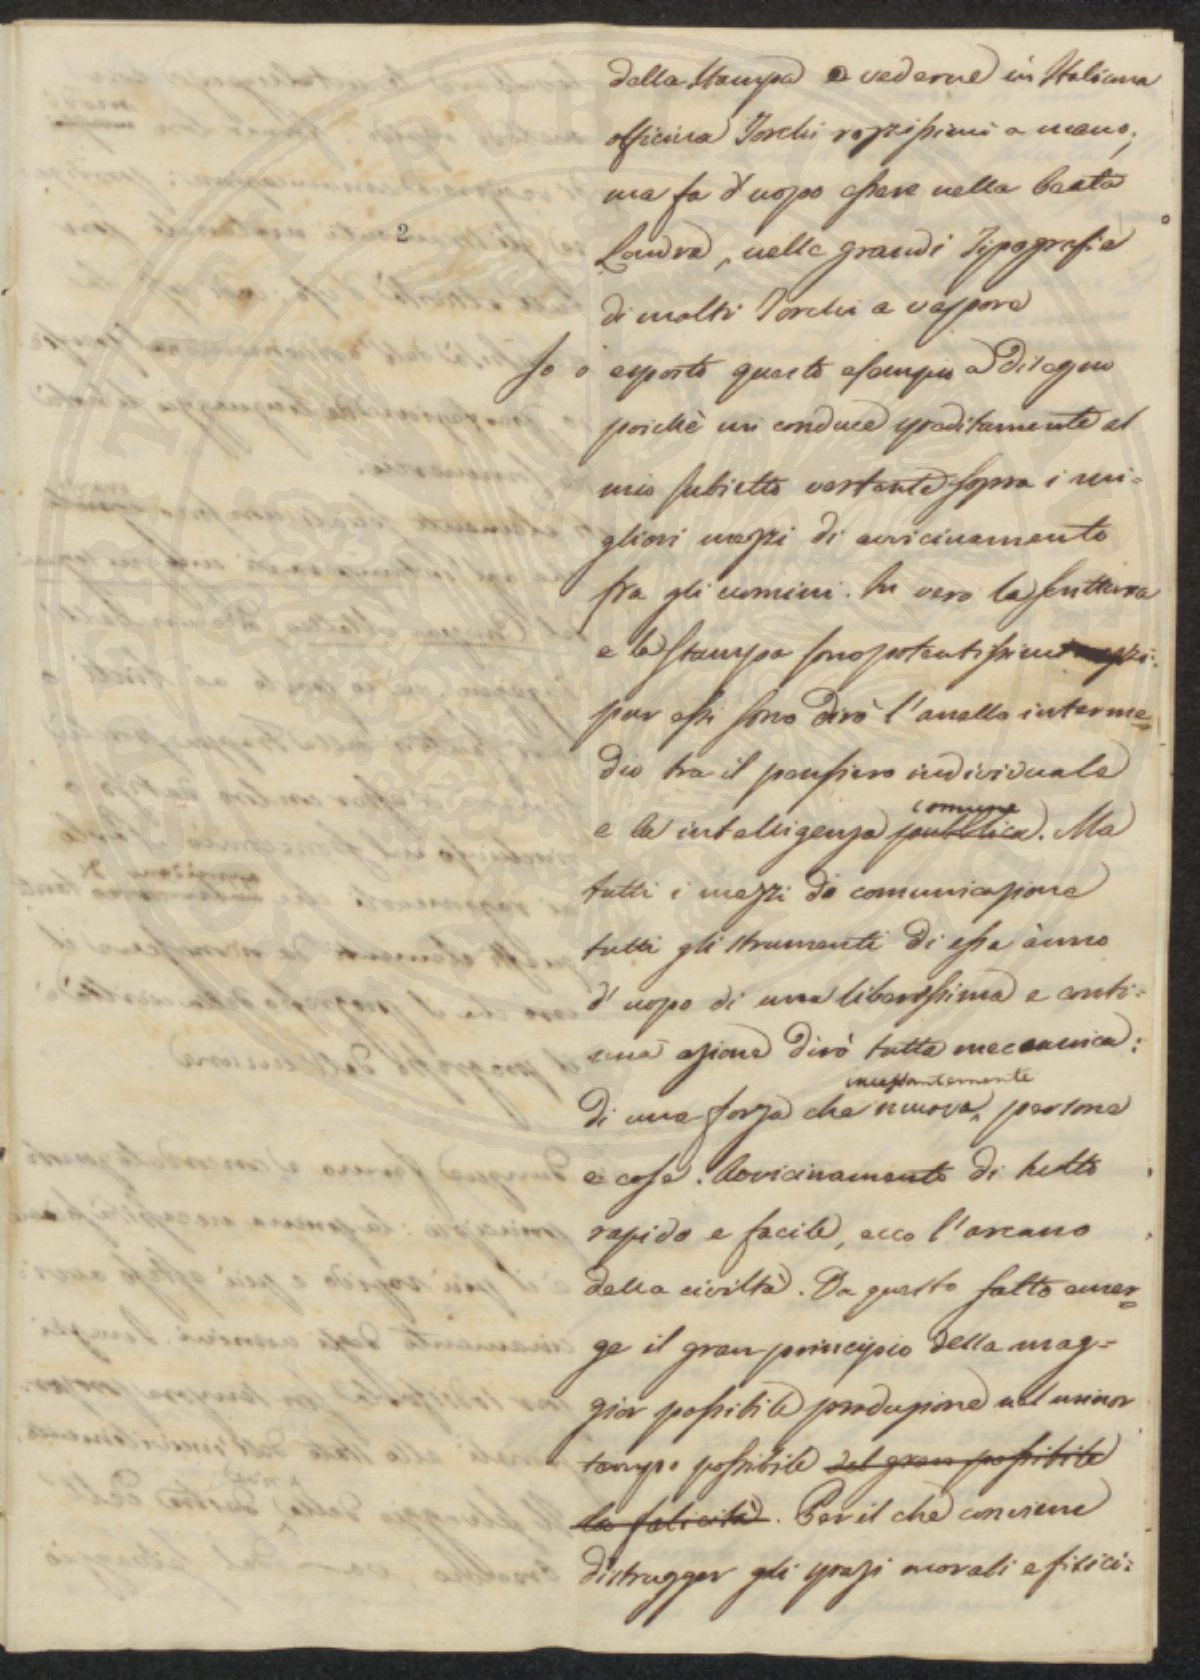 della Stampa e vederne in Italiana
officina Torchi rozzissimi a mano;
ma fa d'uopo essere nella beata
2
Londra, nelle grandi Tipografie
di molti Torchi a vapore
Io ò esposto questo esempio a Disegno
poichè mi conduce speditamente al
mio subietto vertente sopra i mi=
gliori mezzi di avvicinamento
fra gli uomini. In vero la scrittura
e la stampa sono potentissimi mezzi:
pur essi sono dirò l'anello interme=
dio tra il pensiero individuale
comune
e la intelligenza pubblica. Ma
tutti i mezzi di comunicazione
tutti gli strumenti di essa ànno
d'uopo di una liberissima e conti=
nua azione dirò tutta meccanica:
incessantemente
di una forza che muova persone
e cose. Avvicinamento di tutto
rapido e facile, ecco l'arcano
della civiltà. Da questo fatto emer=
ge il gran principio della mag=
gior possibile produzione nel minor
tempo possibile del gran possibile
la felicità. Per il che conviene
distrugger gli spazi morali e fisici: